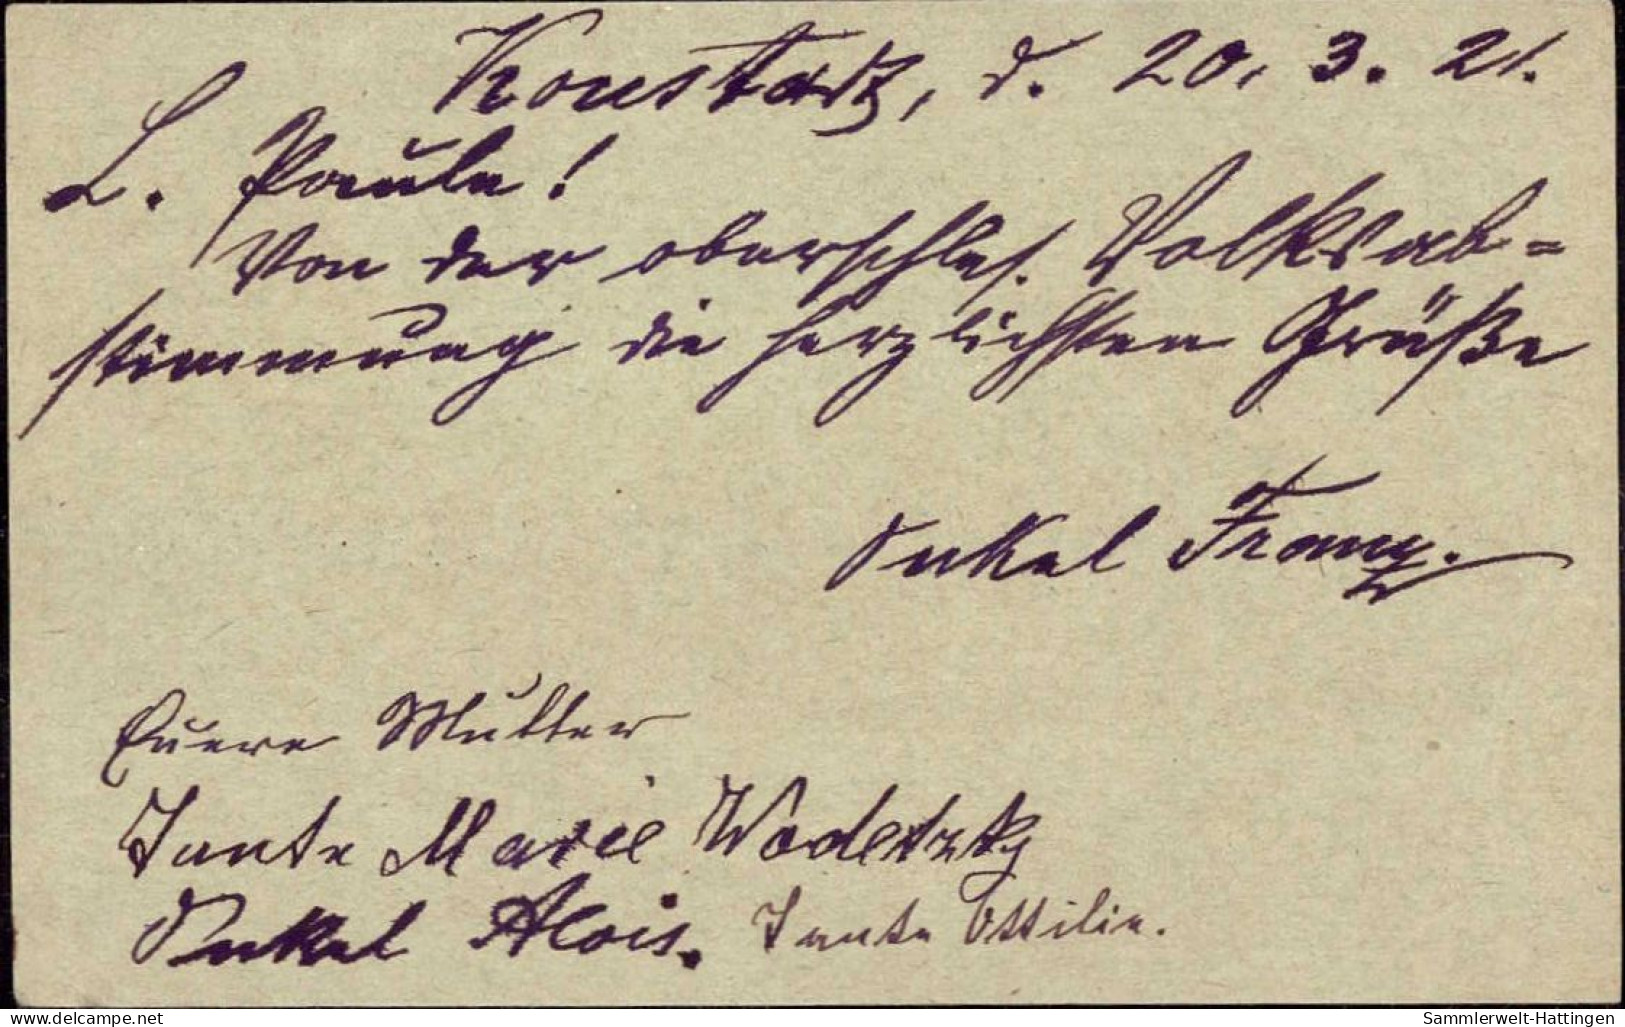 Konstadt, d. 20. 3. 21.
L. Paula!
Von der oberschles. Volksab=
stimmung die herzlichsten Grüße
Onkel Franz.
Euere Mutter
Tante Marie Wodetzky
Onkel Alois. Tante Ottilie.
www.delcampe.net
Sammlerwelt-Hattingen